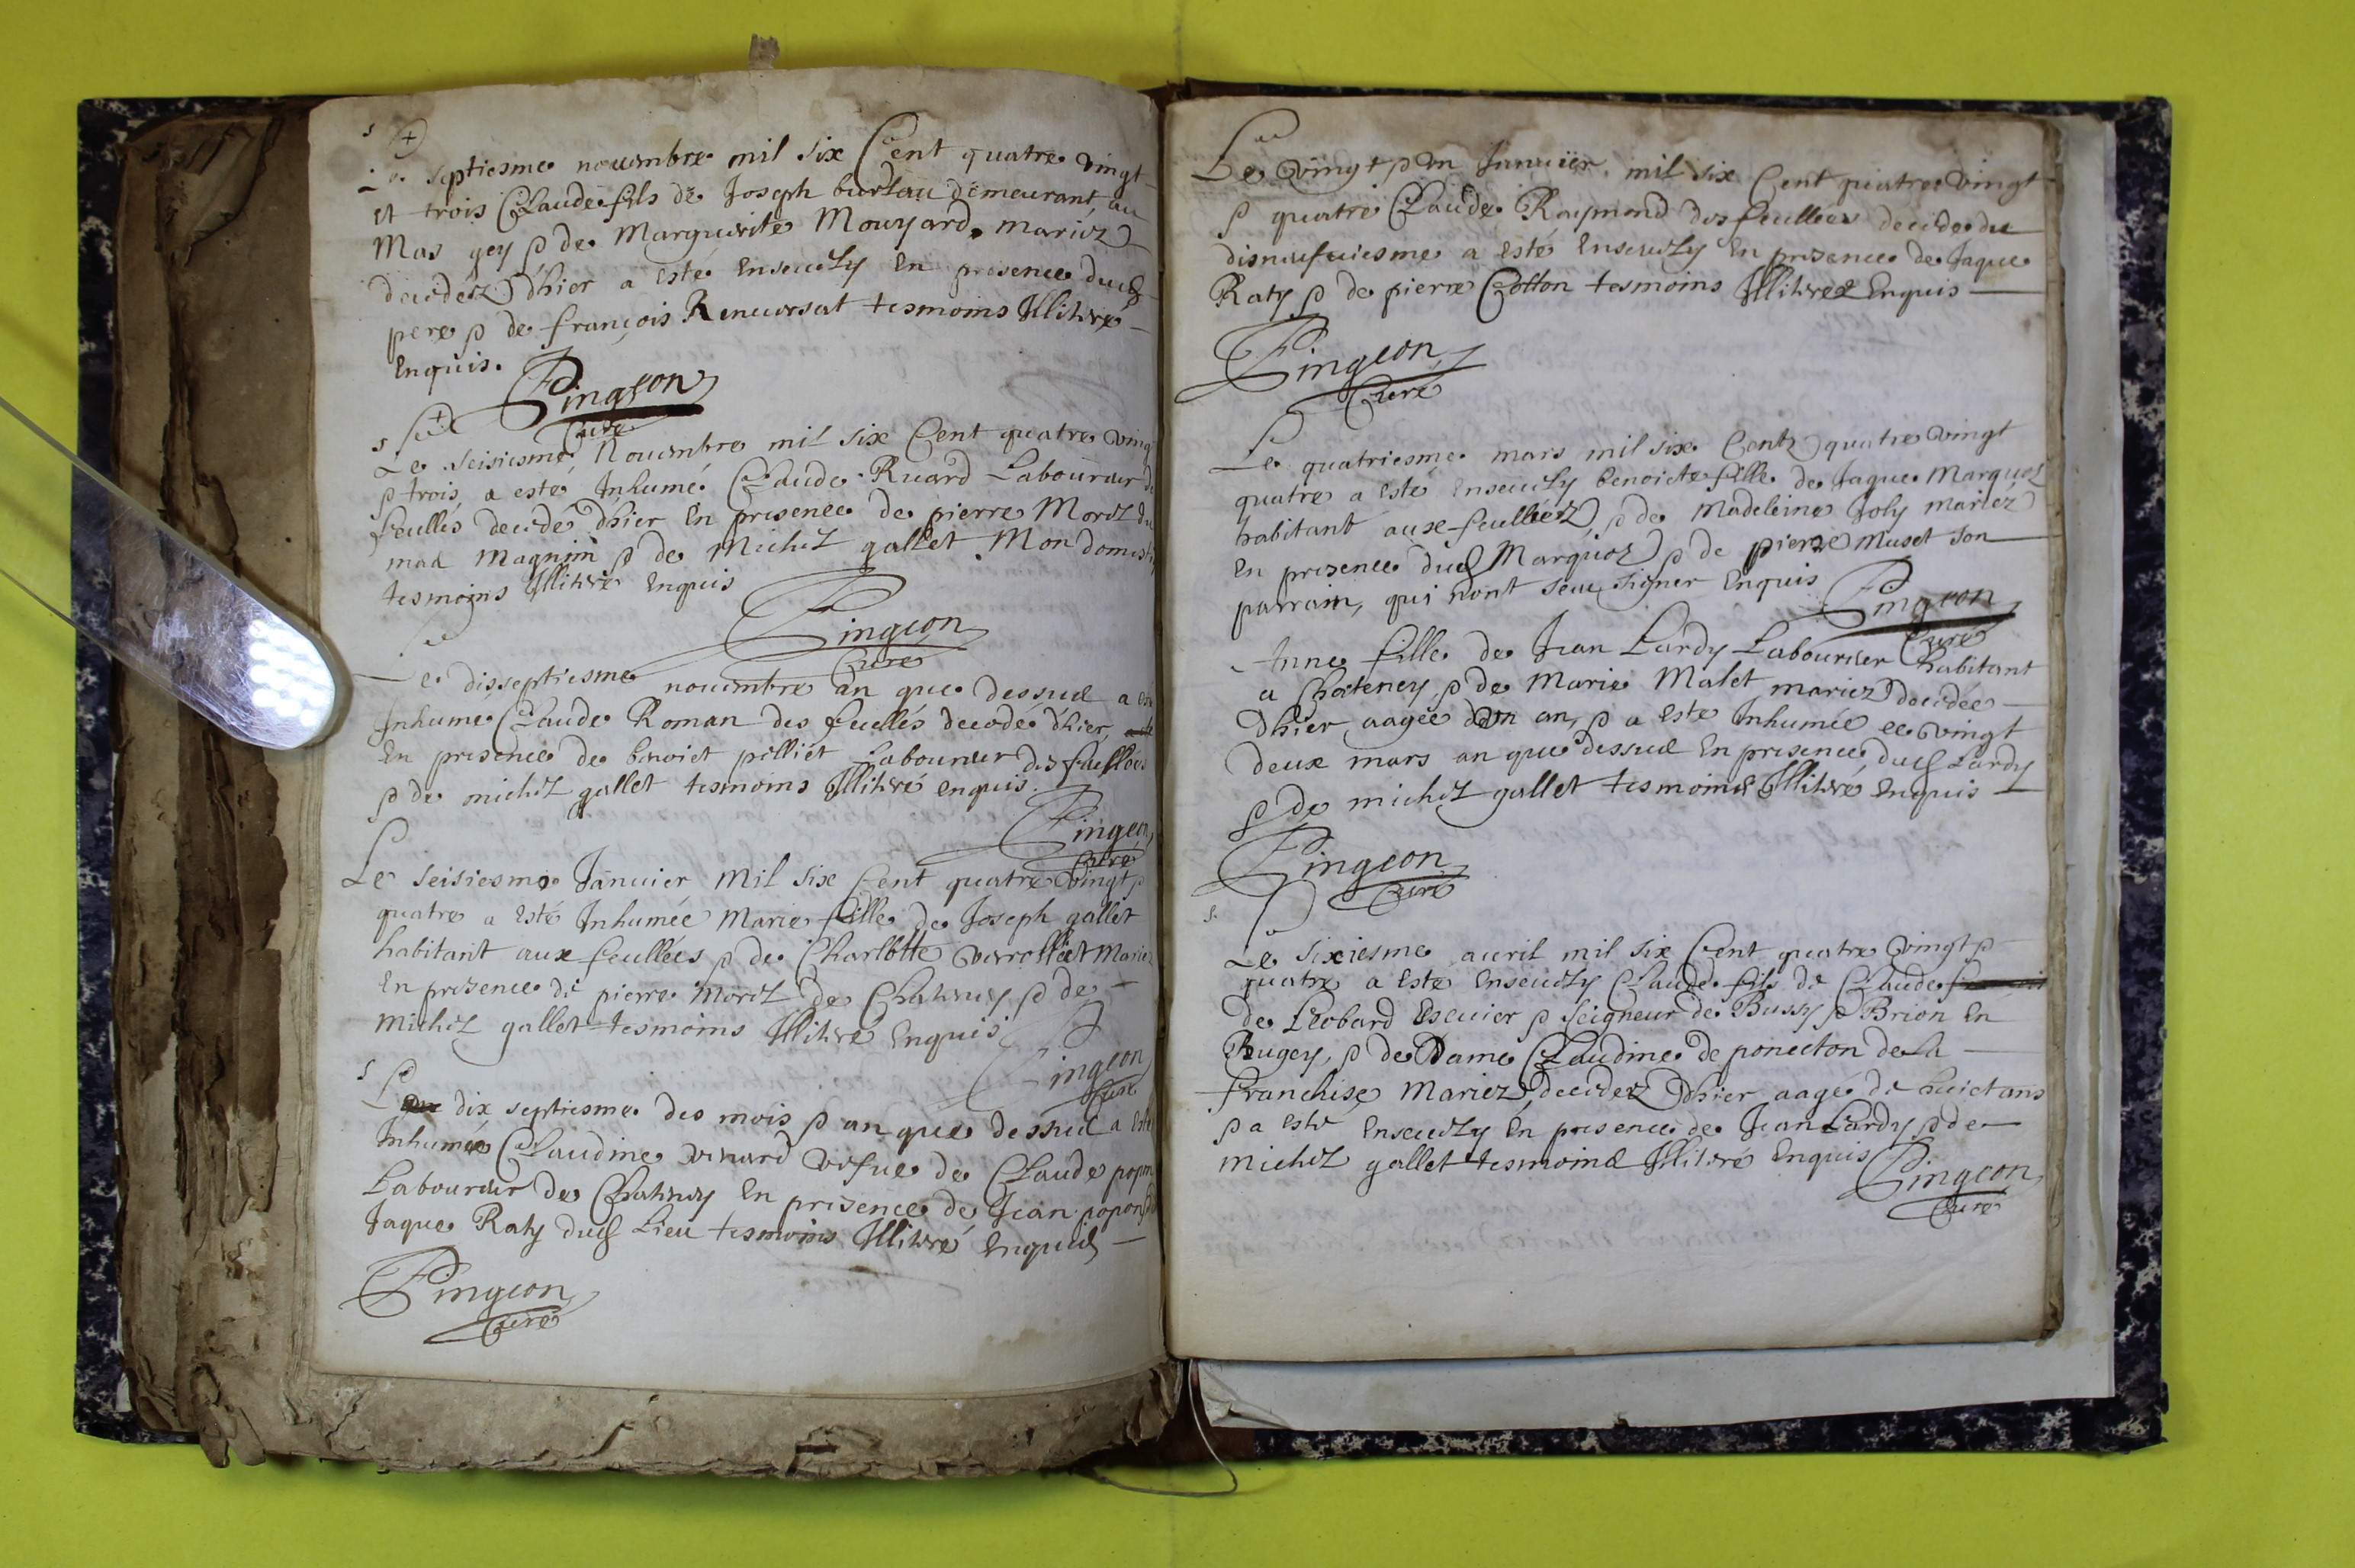 Le septiesme nouembre mil six Cent quatre vingt
et trois Claude fils de Joseph burtau demeurant au
Mas gey & de Marguerite Mouyard mariez
decedez d'hier a esté enseuely en presence dud
pere & de françois Reneursat tesmoins Illitere
enquis.
Pingeon
Curé
Le seisiesme Nouembre mil six Cent quatre ving
& trois a esté Inhumé Claude Ruard Laboureur
feullés decedé d'hier en presence de pierre Morel du
mas Magnin & de Michel gallet Mon domesti
tesmoins Illiteré enquis
Pingeon
Curé
Le disseptiesme nouembre an que dessus a esté
Inhumé Claude Roman des feullés decedé d'hier,
en presence de benoict pilliét Laboureur des feullées
& de michel gallet tesmoins Illiteré enquis.
Pingeon
Curé
Le seisiesme Januier Mil six Cent quatre vingt &
quatre a esté Inhumée Marie fille de Joseph gallet
habitant aux feullées & de Charlotte Mariez
en presence de pierre Morel de Chateney & de
michel gallet tesmoins Illiteré enquis
Pingeon
Curé
Le dix septiesme des mois & an que dessus a esté
Inhumée Claudine vefue de Claude popon
Laboureur de Chateney en presence de Jean popon &
Jaque Raty dud Lieu tesmoins Illiteré enquis
Pingeon
Curé
Le vingt & un Januier mil six Cent quatre vingt
& quatre Claude Raymond des feullées decede du
disneufuiesme a esté enseuely en presence de Jaque
Raty & de pierre Cotton tesmoins Illiteres enquis
Pingeon
Curé
Le quatriesme mars mil six Centz quatre vingt
quatre a esté enseuely benoicte fille de Jaque Marquoz
habitant aux feulléez & de Madeleine Joly mariez
en presence dud Marquoz & de pierre Muset son
parrain, qui nont seu signer enquis
Pingeon
Curé
Anne fille de Jean Lardy Laboureur habitant
a Chateney & de Marie Malet mariez decedée
d'hier aagée d'un an, & a esté Inhumée ce vingt
deux mars an que dessus en presence dud Lardy
& de michel gallet tesmoins Illiteré enquis
Pingeon
Curé
Le sixiesme auril mil six Cent quatre vingt &
quatre a esté enseuely Claude fils de Claude
de Leobard escuier & seigneur de Bussy & Brion en
Bugey, & de Dame Claudine de poncton de la
franchise Mariez, decedez d'hier aagé de huict ans
& a esté enseuely en presence de Jean Lardy & de
michel gallet tesmoins Illiteré enquis
Pingeon
Curé